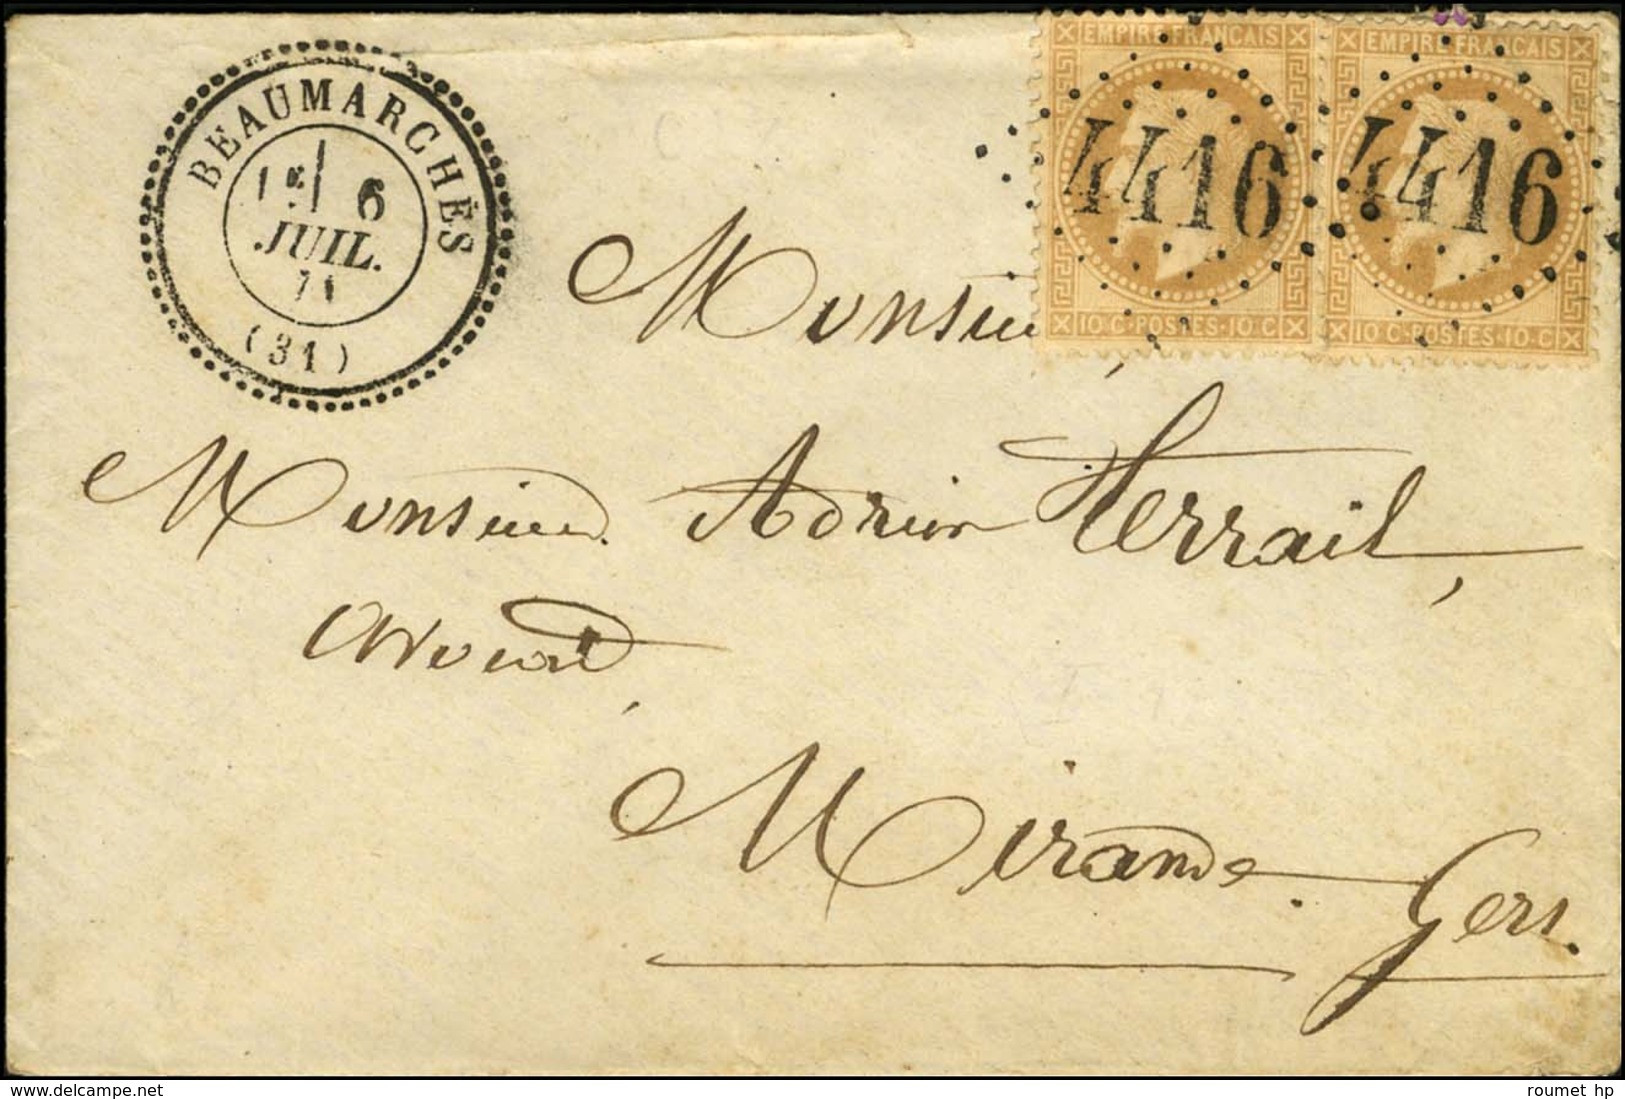 BEAUMARCHÉS
1E/ 6
JUIL.
71
(31)
EMPIRE FRANCAIS
4416
10 C·POSTES·10 C
EMPIRE FRANCAIS
4416
10 C·POSTES·10 C
Monsieur,
Monsieur Adrien Terrail,
Avoué,
Mirande.
Gers.
www.delcampe.net
roumet hp